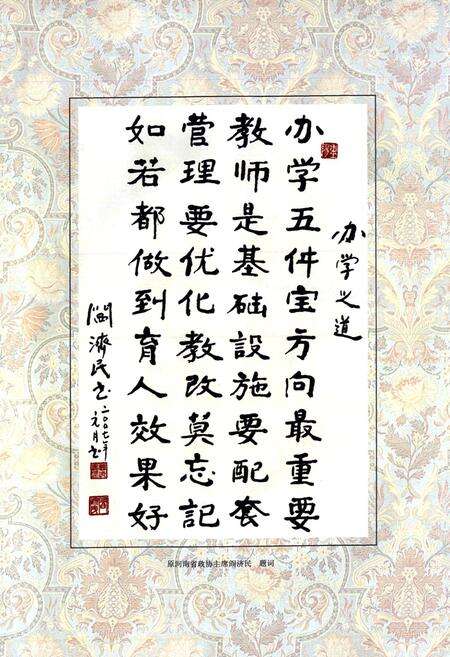 办学之道
办学五件宝方向最重要
教师是基础設施要配套
管理要优化教改莫忘記
如若都做到育人效果好
阎濟民书
二〇〇七年
元月书
原河南省政协主席阎济民 题词